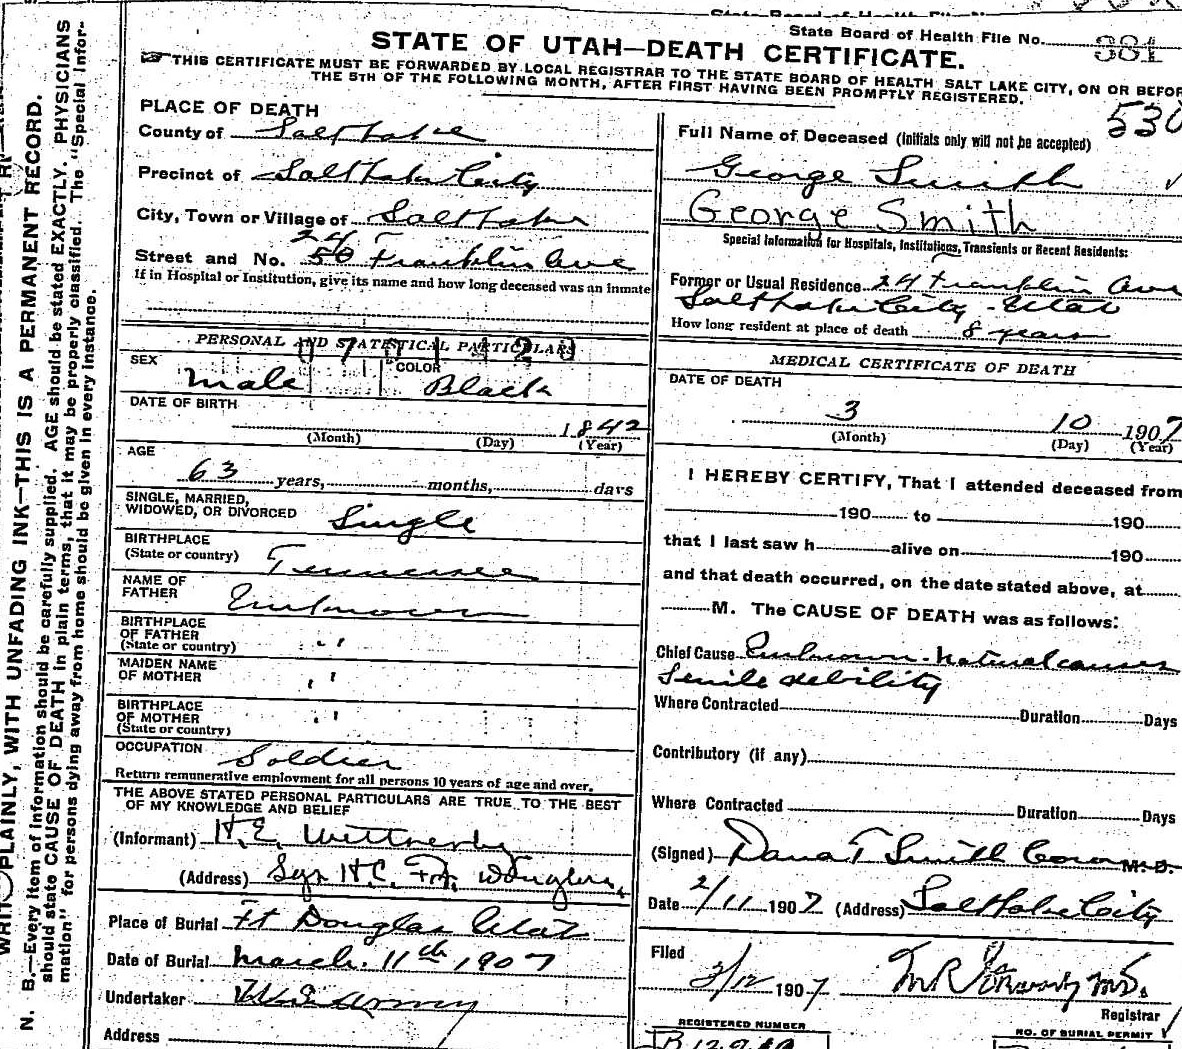 State Board of Health File No. 381
STATE OF UTAH—DEATH CERTIFICATE.
THIS CERTIFICATE MUST BE FORWARDED BY LOCAL REGISTRAR TO THE STATE BOARD OF HEALTH SALT LAKE CITY, ON OR BEFOR
THE 5TH OF THE FOLLOWING MONTH, AFTER FIRST HAVING BEEN PROMPTLY REGISTERED.
530
PLACE OF DEATH
County of Salt Lake
Precinct of Salt Lake City
City, Town or Village of Salt Lake
24
Street and No. 50 Franklin Ave
If in Hospital or Institution, give its name and how long deceased was an inmate
PERSONAL AND STATISTICAL PARTICULARS
SEX Male
COLOR Black
DATE OF BIRTH 1842
(Month) (Day) (Year)
AGE
63 years, months, days
SINGLE, MARRIED,
WIDOWED, OR DIVORCED Single
BIRTHPLACE
(State or country) Tennessee
NAME OF
FATHER Unknown
BIRTHPLACE
OF FATHER
(State or country) "
MAIDEN NAME
OF MOTHER "
BIRTHPLACE
OF MOTHER "
(State or country)
OCCUPATION Soldier
Return remunerative employment for all persons 10 years of age and over.
THE ABOVE STATED PERSONAL PARTICULARS ARE TRUE TO THE BEST
OF MY KNOWLEDGE AND BELIEF
(Informant) H. E.
(Address) Sgt H.C. Ft. Douglas
Place of Burial Ft Douglas Utah
Date of Burial March 11th 1907
Undertaker U.S. Army
Address
Full Name of Deceased (Initials only will not be accepted)
George Smith
George Smith
Special Information for Hospitals, Institutions, Transients or Recent Residents:
Former or Usual Residence 24 Franklin Ave
Salt Lake City - Utah
How long resident at place of death 8 years
MEDICAL CERTIFICATE OF DEATH
DATE OF DEATH
3 10 1907
(Month) (Day) (Year)
I HEREBY CERTIFY, That I attended deceased from
190 to 190
that I last saw h alive on 190
and that death occurred, on the date stated above, at
M. The CAUSE OF DEATH was as follows:
Chief Cause Unknown - Natural causes
Senile debility
Where Contracted Duration Days
Contributory (if any)
Where Contracted Duration Days
(Signed) Dana T Smith M. D.
Date 2/11 1907 (Address) Salt Lake City
Filed
3/12 1907 M.D.
Registrar
REGISTERED NUMBER
NO. OF BURIAL PERMIT
PLAINLY, WITH UNFADING INK—THIS IS A PERMANENT RECORD.
N. B.—Every item of information should be carefully supplied. AGE should be stated EXACTLY. PHYSICIANS
should state CAUSE OF DEATH in plain terms, that it may be properly classified. The "Special Infor-
mation" for persons dying away from home should be given in every instance.